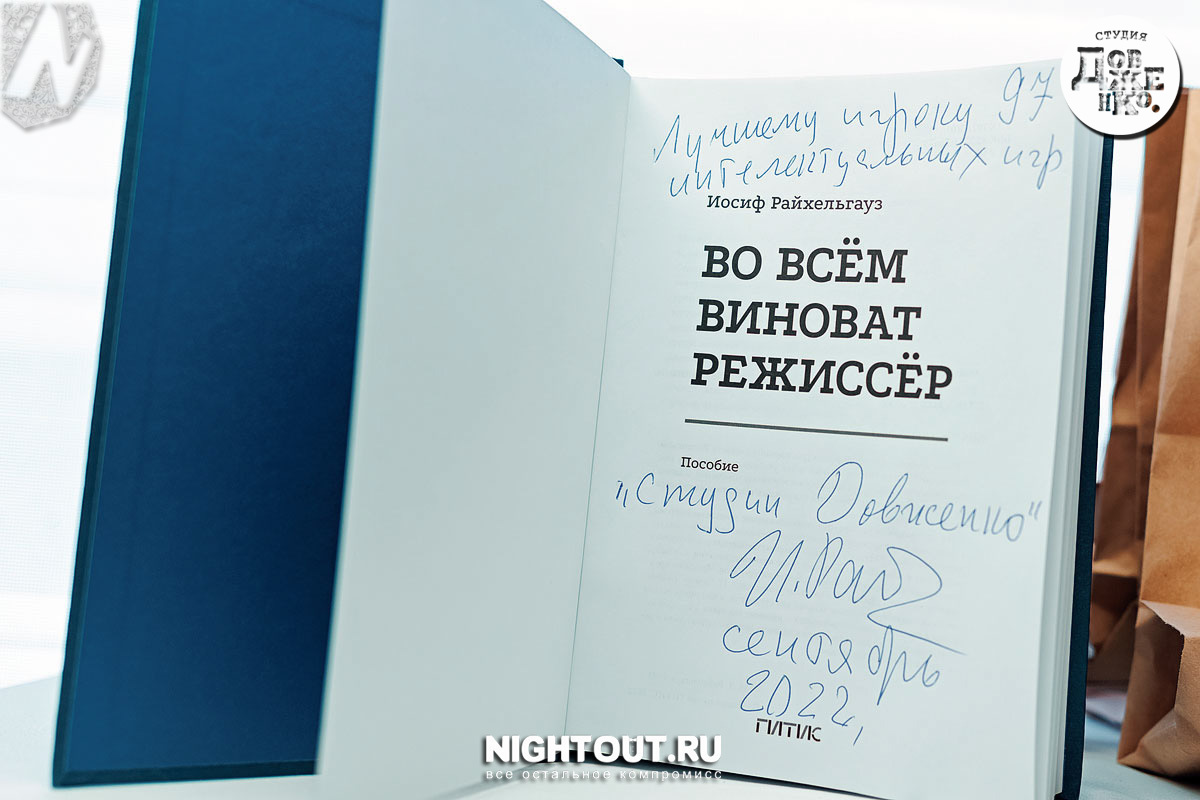 СТУДИЯ
ДОВ
ЖЕ
НКО.
Лучшему игроку 97
интелектуальных игр
Иосиф Райхельгауз
ВО ВСЁМ
ВИНОВАТ
РЕЖИССЁР
Пособие
"Студии Довженко"
сентябрь
2022,
ГИТИС
NIGHTOUT.RU
все остальное компромисс